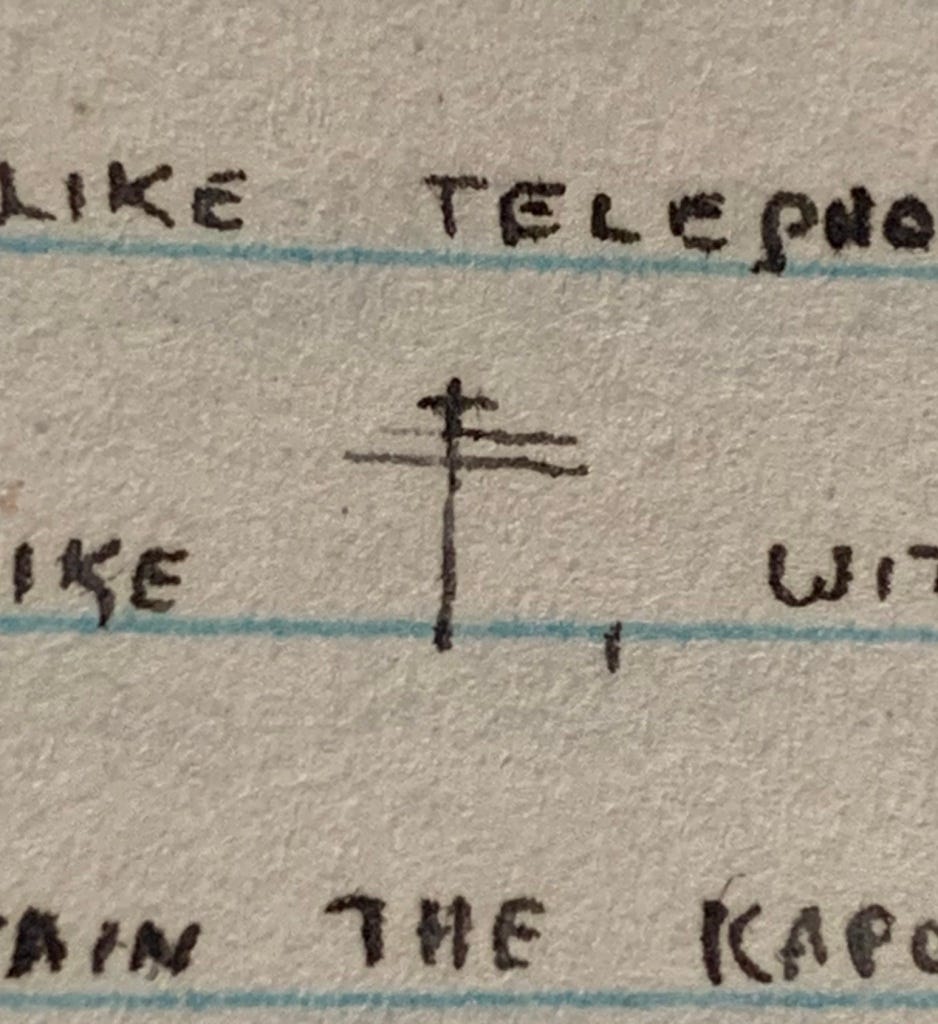 LIKE TELEPHO
IKE , WIT
AIN THE KAPO